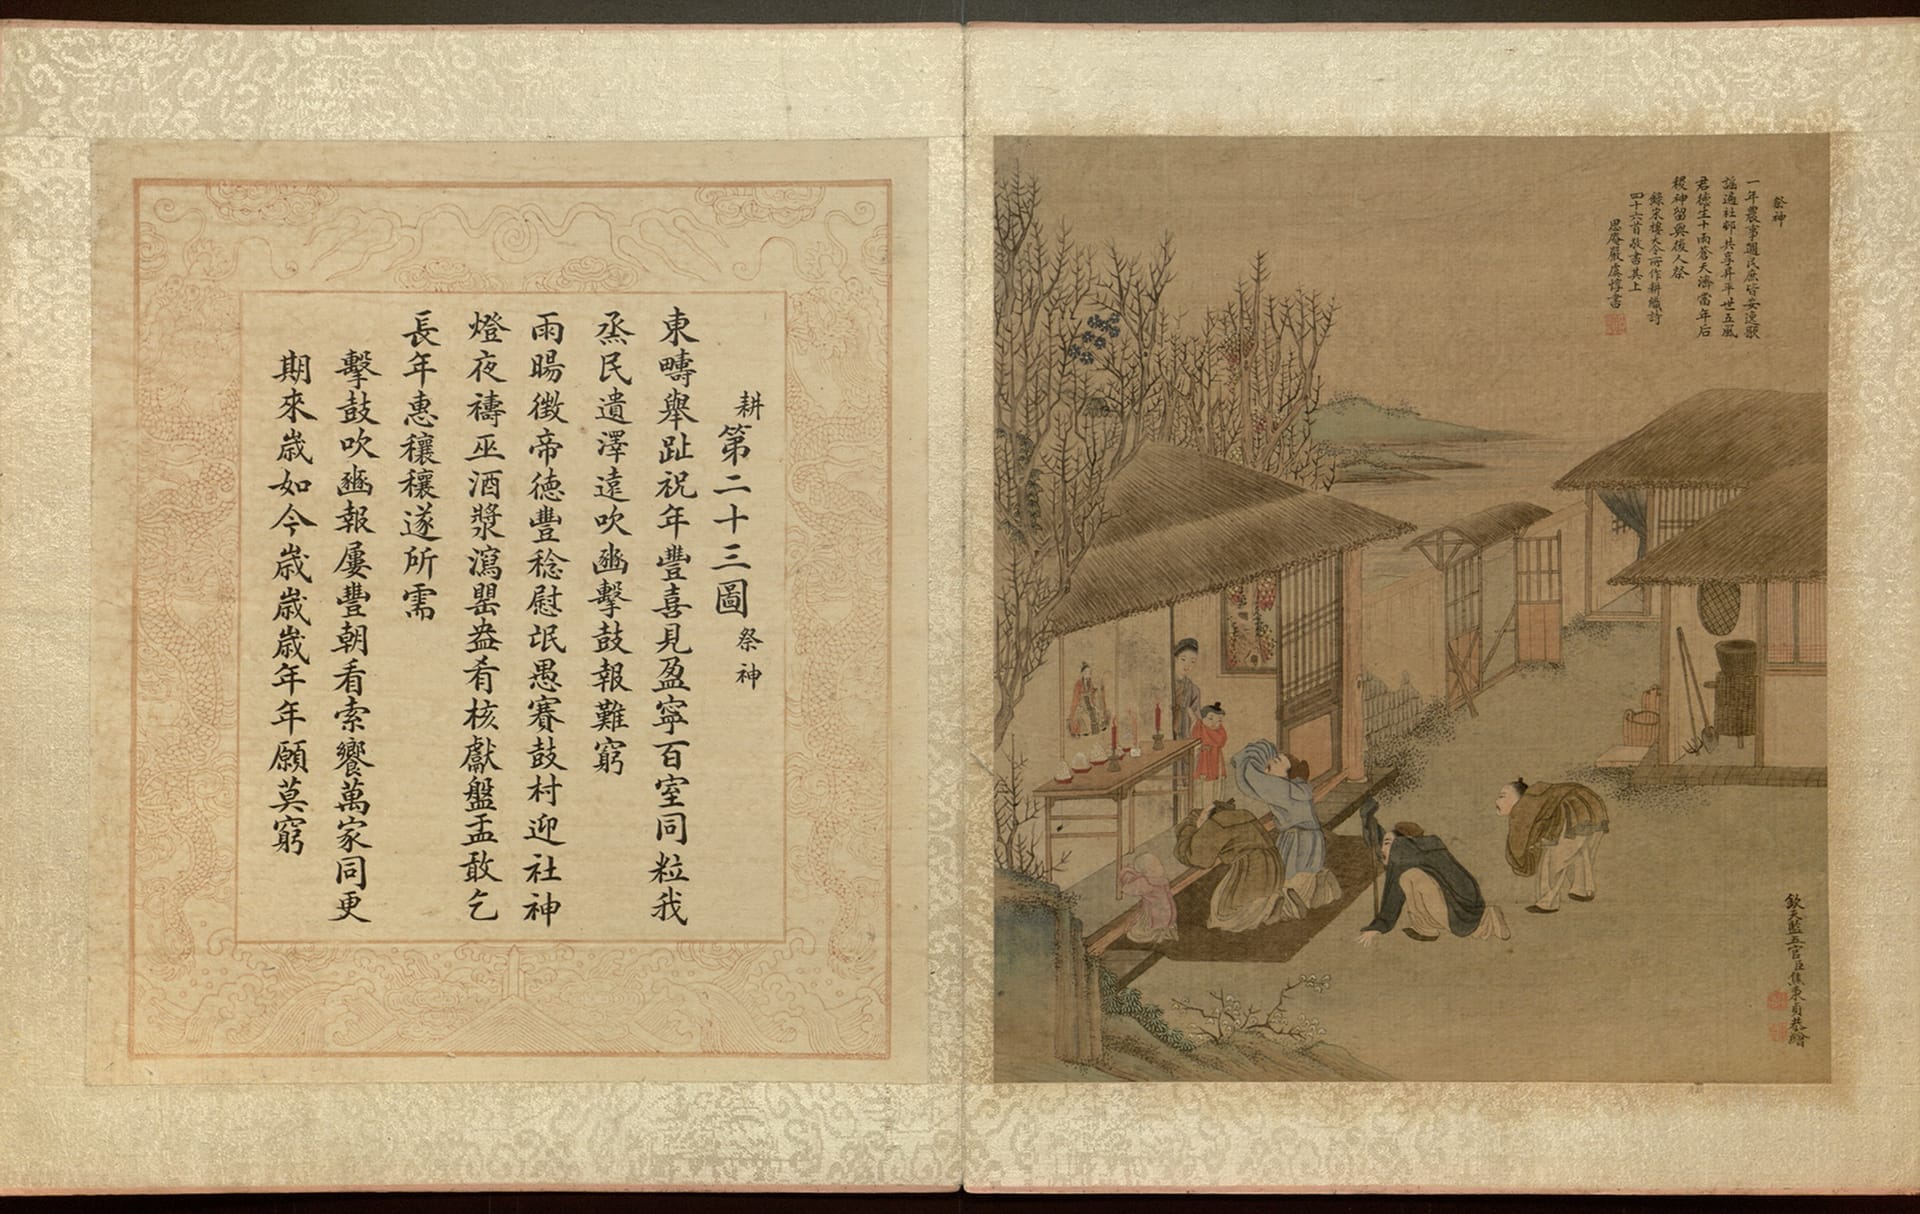 祭神
一年農事週民庶皆安逸歌
謡遍社邨共享昇平世五風
君德生十雨蒼天濟當年后
稷神留與後人祭
錄宋樓大令所作耕織詩
四十六首敬書其上
思庵嚴虞惇書
欽天監五官臣焦秉貞恭繪
耕第二十三圖祭神
東疇舉趾祝年豐喜見盈寧百室同粒我
烝民遺澤遠吹豳擊鼓報難窮
雨暘徵帝德豐稔慰氓愚賽鼓村迎社神
燈夜禱巫酒漿瀉罌盎肴核獻盤盂敢乞
長年惠穰穰遂所需
擊鼓吹豳報屢豐朝看索饗萬家同更
期來歲如今歲歲歲年年願莫窮